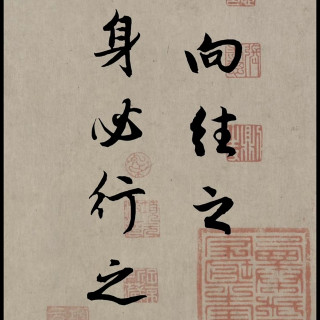 向往之
身必行之